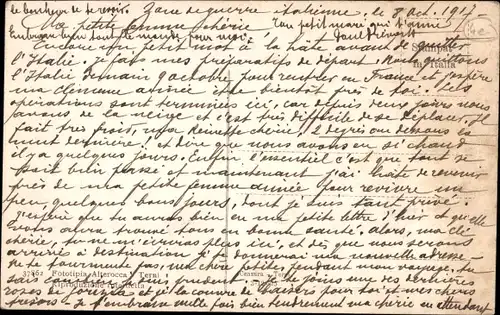 le bonheur de te revoir. Zone de guerre italienne, le 8 oct. 1917
Ma petite femme chérie Ton petit mari qui t'aime
Embrasse bien tout le monde pour moi. Paul
Encore un petit mot à la hâte avant de quitter
l'Italie. Je fais mes préparatifs de départ. Nous quittons
l'Italie demain 9 octobre pour rentrer en France et j'espère
ma aimée être bientôt près de toi. Les
opérations sont terminées ici, car depuis deux jours nous
avons de la neige et c'est très difficile de se déplacer. Il
fait très froid, ma chérie, 2 degrés au dessous la
nuit dernière! et dire que nous avons eu si chaud
il y a quelques jours. Enfin l'essentiel c'est que tout se
soit bien passé et maintenant j'ai hâte de revenir
près de ma petite femme aimée pour revivre un
peu quelques bons jours, dont je suis tant privé.
J'espère que tu auras bien eu ma petite lettre d'hier et qu'elle
vous aura trouvé tous en bonne santé. alors, ma
chérie, tu ne m'écriras plus ici, et dès que nous serons
arrivés à destination je te donnerai ma nouvelle adresse.
Ne te tourmente pas, ma chère petite, pendant mon voyage, tu
sais que je suis prudent. Je te joins une des dernières
roses de et je la couvre de baisers pour toi et mes chers
Je t'embrasse mille fois bien tendrement ma chérie en attendant
Stampata
in Italia
Fototipia Alterocca Terni
Riproduzione interdetta